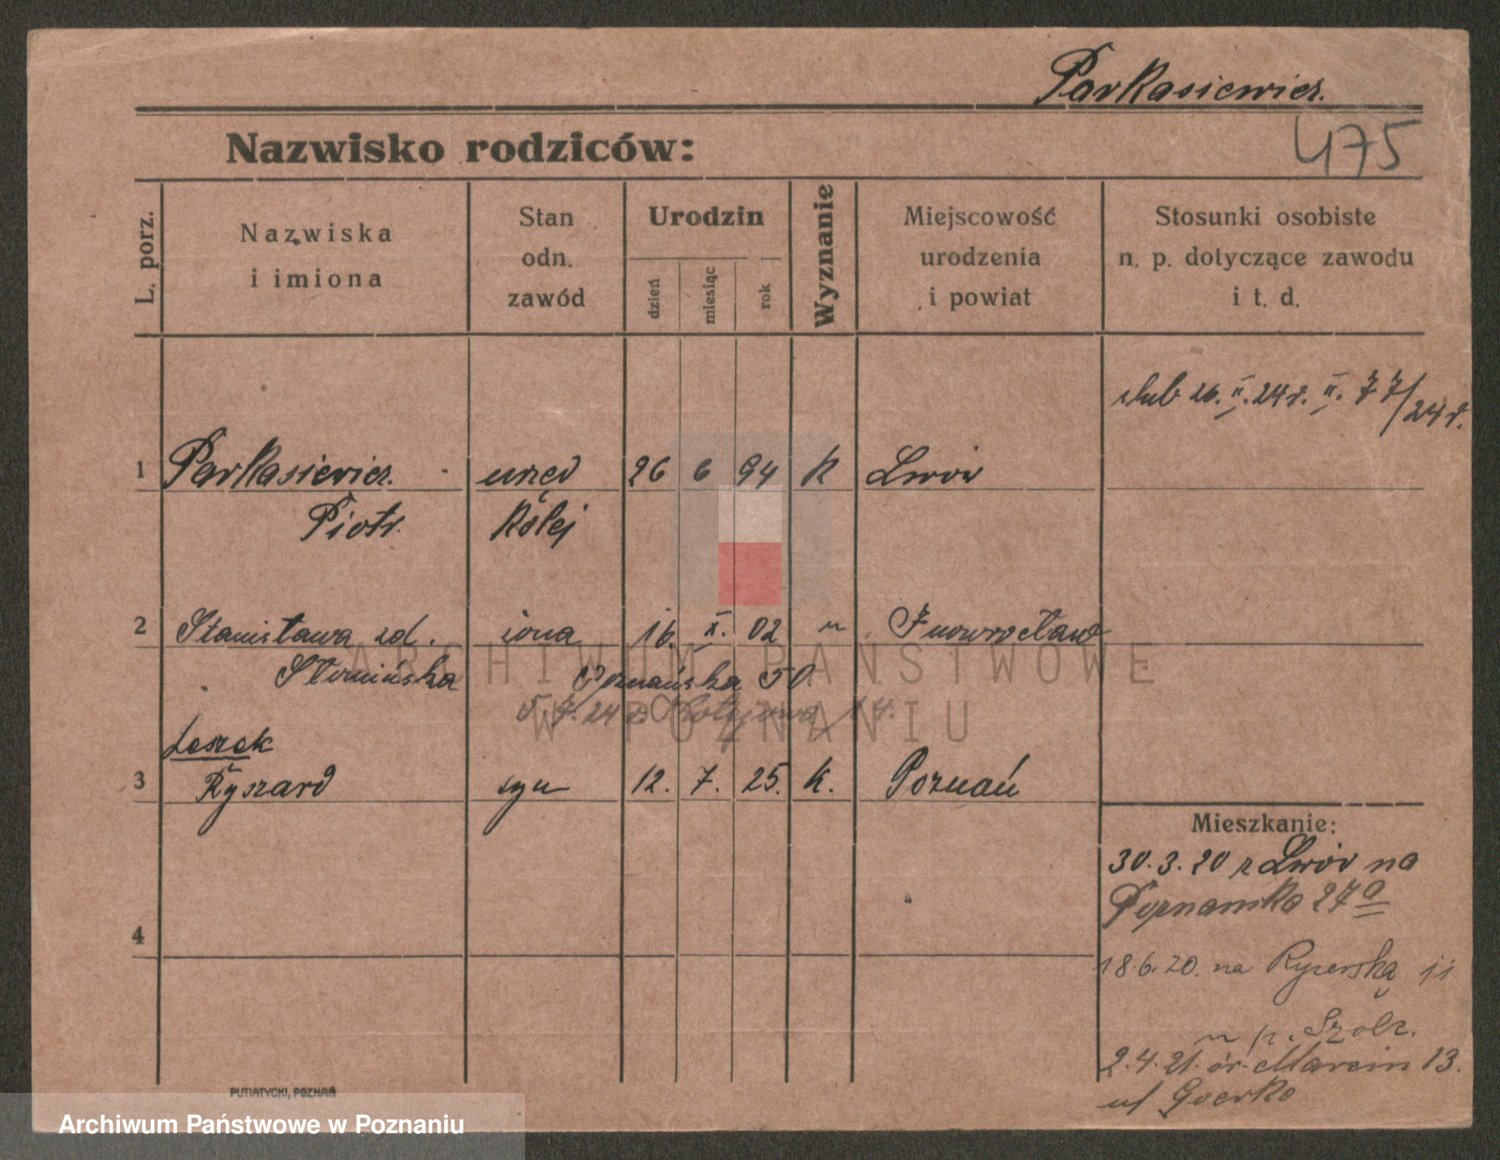 Parkasiewicz.
475
Nazwisko rodziców:
L. porz.
Nazwiska
i imiona
Stan
odn.
zawód
Urodzin
dzień
miesiąc
rok
Wyznanie
Miejscowość
urodzenia
i powiat
Stosunki osobiste
n. p. dotyczące zawodu
i t. d.
ślub 26. II. 24 r. II. 77/24 r.
1 Parkasiewicz. urzęd 26 6 94 k Lwów
Piotr. Kolej
2 Stanisława zd. żona 16. X. 02 " Inowrocław
Słomińska Poznańska 50
24
Leszek
3 Ryszard syn 12. 7. 25. k. Poznań
Mieszkanie:
30.3.20 z Lwów na
Poznańska 27a
4
18.6.20. na Rycerską 11
u p. Szolz.
2.4.21. św. Marcin 13.
u
PUTIATYCKI, POZNAŃ
ARCHIWUM PAŃSTWOWE
W POZNANIU
Archiwum Państwowe w Poznaniu